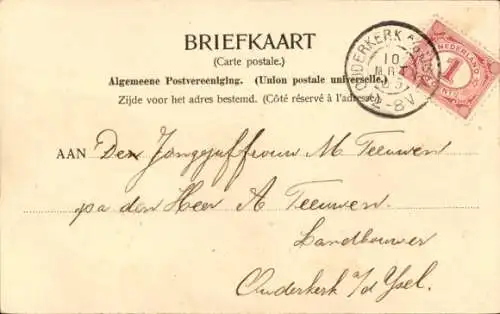 BRIEFKAART
(Carte postale.)
Algemeene Postvereeniging. (Union postale universelle.)
Zijde voor het adres bestemd. (Côté réservé à l'adresse.)
OUDERKERK
10
8V
NEDERLAND
1
CENT
AAN Den Jongejuffrouw M Teeuwen
pa den Heer A Teeuwen.
Landbouwer
Ouderkerk a/d Ysel.